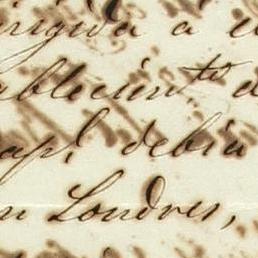 irigida a
blecim.to d
ap.l, debia
n Londres,